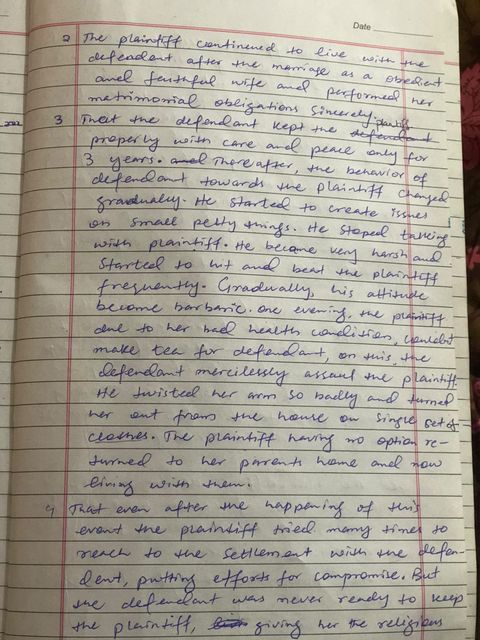 Date
2 The plaintiff continued to live with the
defendant after the marriage as a obedient
and faithful wife and performed her
matrimonial obligations sincerely.
3. That the defendant kept the defendant plaintiff
properly with care and peace only for
3 years. and Thereafter, the behavior of
defendant towards the plaintiff changed
gradually. He started to create issues
on small petty things. He stoped talking
with plaintiff. He become very harsh and
started to hit and beat the plaintiff
frequently. Gradually, his attitude
become barbaric. one evening, the plaintiff
due to her bad health condition, couldn't
make tea for defendant, on this, the
defendant mercilessly assaul the plaintiff.
He twisted her arm so badly and turned
her out from the house on single set of
clothes. The plaintiff having no option re-
turned to her parents home and now
living with them.
4 That even after the happening of this
event the plaintiff tried many times to
reach to the settlement with the defen-
dent, putting efforts for compromise. But
the defendant was never ready to keep
the plaintiff, giving her the religious